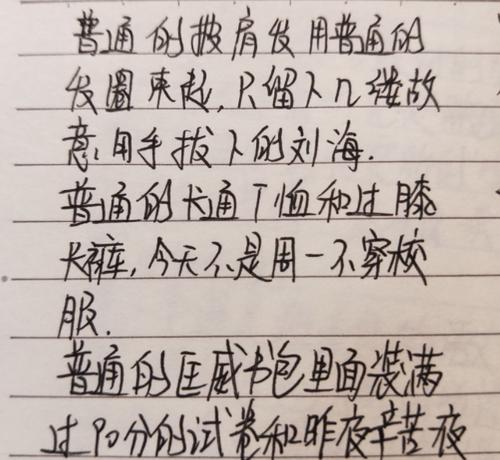 普通的披肩发用普通的
发圈束起,只留下几缕故
意用手拔下的刘海.
普通的卡通T恤和过膝
长裤,今天不是周一不穿校
服.
普通的匡威书包里面装满
过90分的试卷和昨夜辛苦夜